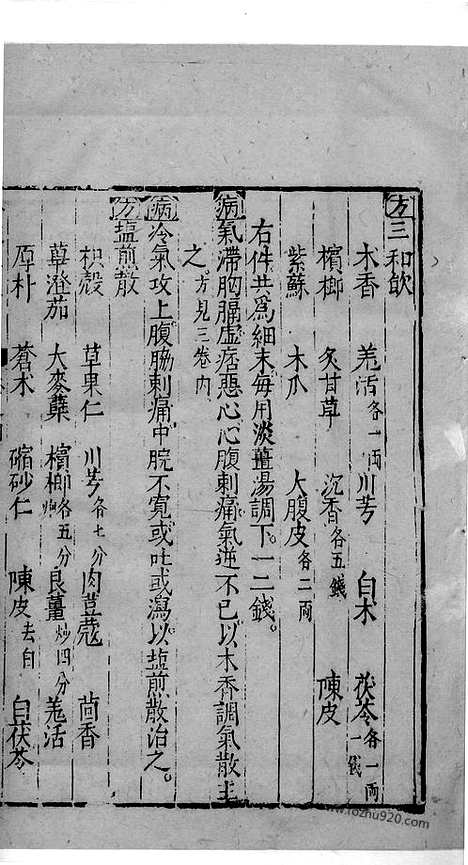 方三和飲
木香 羌活各一两 川芎 白术 茯苓各一两一錢
檳榔 炙甘草 沉香各五錢 陳皮
紫蘇 木瓜 大腹皮各二两
右件共爲細末每用淡薑湯調下一二錢。
病氣滯胸膈虛痞惡心心腹刺痛氣逆不已以木香調氣散主
之。方見三卷内
病冷氣攻上腹脇刺痛中脘不寛或吐或瀉以塩煎散治之。
方塩煎散
枳殻 草果仁 川芎各七分 肉荳蔻 茴香
蓽澄茄 大麥蘖 檳榔各五分 良薑炒四分 羌活
厚朴 蒼术 縮砂仁 陳皮去白 白茯苓
www.fozhu920.com